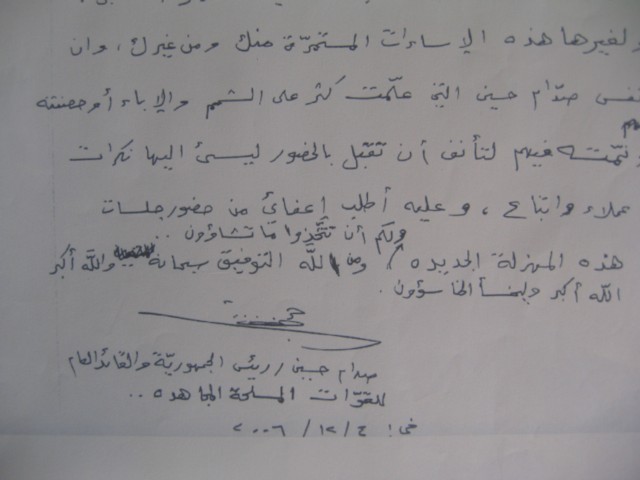 ولغيرها هذه الإساءات المستمرّة منك ومن غيرك، وان
نفس صدّام حسين التي علّمت كثر على الشمم والإباء أو حصنته
فيهم
ونمّته فيهم لتأنف أن تقبل بالحضور ليسئ اليها نكرات
عملاء واتباع، وعليه أطلب إعفائي من حضور جلسات
ولكم أن تتّخذوا ما تشاؤون ..
هذه المهزلة الجديده، ومن اللّه التوفيق سبحانه واللّه أكبر
اللّه أكبر وليخسأ الخاسؤون .
صدام حسين / رئيس الجمهوريّة والقائد العام
للقوّات المسلحة المجاهده ..
في : ٤ / ١٢ / ٢٠٠٦